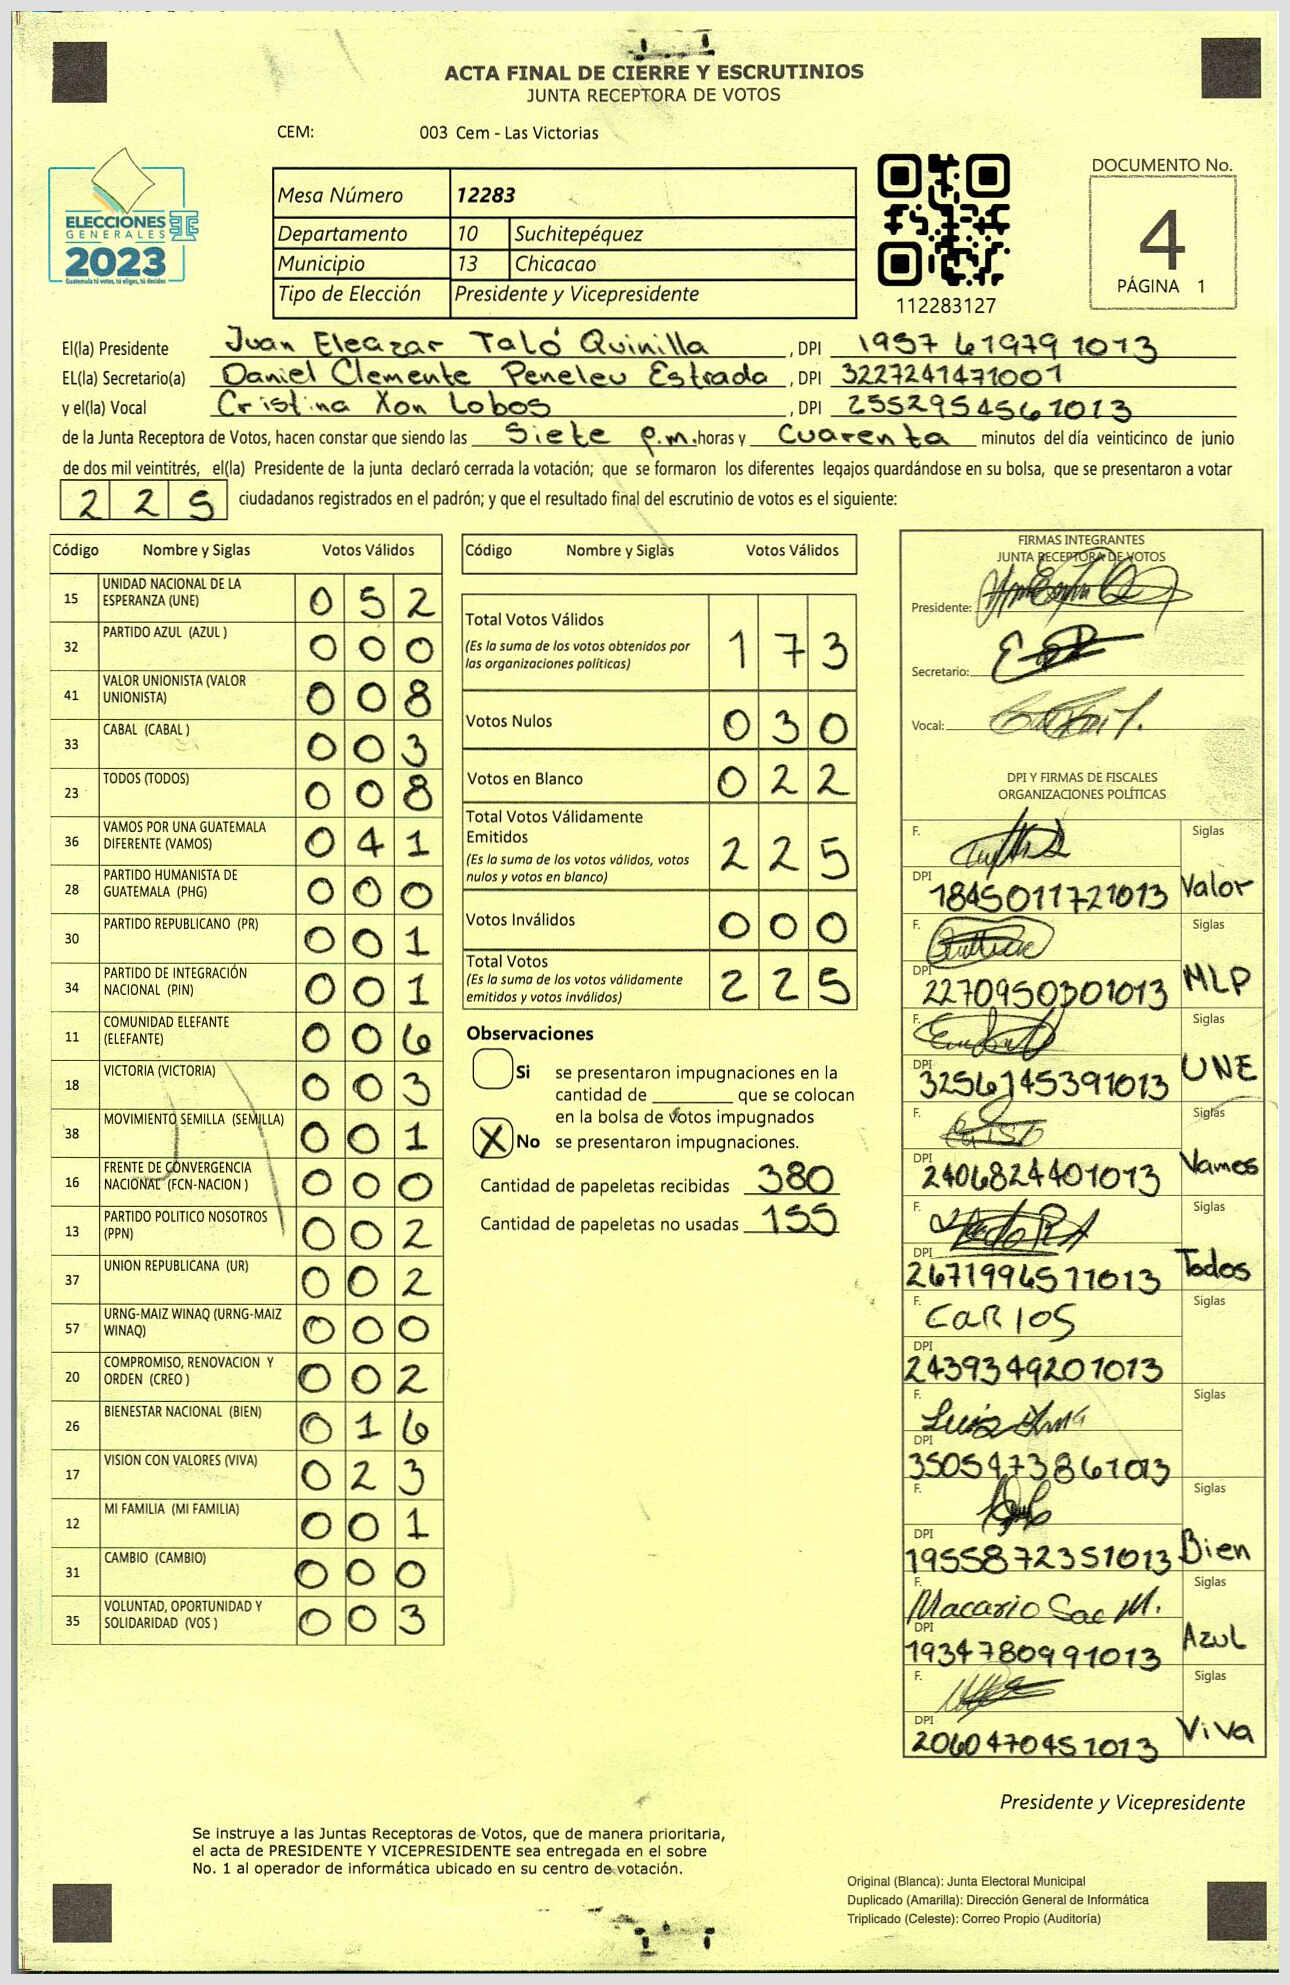 ACTA FINAL DE CIERRE Y ESCRUTINIOS
JUNTA RECEPTORA DE VOTOS
CEM: 003 Cem - Las Victorias
ELECCIONES
GENERALES
2023
Guatemala tú votas, tú eliges, tú decides
Mesa Número 12283
Departamento 10 Suchitepéquez
Municipio 13 Chicacao
Tipo de Elección Presidente y Vicepresidente
112283127
DOCUMENTO No.
4
PÁGINA 1
El(la) Presidente Juan Eleazar Taló Quinilla, DPI 1957 61979 1013
EL(la) Secretario(a) Daniel Clemente Peneleu Estrada, DPI 3227241471001
y el(la) Vocal Cristina Xon Lobos, DPI 2552954561013
de la Junta Receptora de Votos, hacen constar que siendo las Siete p.m. horas y Cuarenta minutos del día veinticinco de junio
de dos mil veintitrés, el(la) Presidente de la junta declaró cerrada la votación; que se formaron los diferentes legajos guardándose en su bolsa, que se presentaron a votar
225 ciudadanos registrados en el padrón; y que el resultado final del escrutinio de votos es el siguiente:
Código Nombre y Siglas Votos Válidos
15 UNIDAD NACIONAL DE LA ESPERANZA (UNE) 0 5 2
32 PARTIDO AZUL (AZUL ) 0 0 0
41 VALOR UNIONISTA (VALOR UNIONISTA) 0 0 8
33 CABAL (CABAL ) 0 0 3
23 TODOS (TODOS) 0 0 8
36 VAMOS POR UNA GUATEMALA DIFERENTE (VAMOS) 0 4 1
28 PARTIDO HUMANISTA DE GUATEMALA (PHG) 0 0 0
30 PARTIDO REPUBLICANO (PR) 0 0 1
34 PARTIDO DE INTEGRACIÓN NACIONAL (PIN) 0 0 1
11 COMUNIDAD ELEFANTE (ELEFANTE) 0 0 6
18 VICTORIA (VICTORIA) 0 0 3
38 MOVIMIENTO SEMILLA (SEMILLA) 0 0 1
16 FRENTE DE CONVERGENCIA NACIONAL (FCN-NACION ) 0 0 0
13 PARTIDO POLITICO NOSOTROS (PPN) 0 0 2
37 UNION REPUBLICANA (UR) 0 0 2
57 URNG-MAIZ WINAQ (URNG-MAIZ WINAQ) 0 0 0
20 COMPROMISO, RENOVACION Y ORDEN (CREO ) 0 0 2
26 BIENESTAR NACIONAL (BIEN) 0 1 6
17 VISION CON VALORES (VIVA) 0 2 3
12 MI FAMILIA (MI FAMILIA) 0 0 1
31 CAMBIO (CAMBIO) 0 0 0
35 VOLUNTAD, OPORTUNIDAD Y SOLIDARIDAD (VOS ) 0 0 3
Código Nombre y Siglas Votos Válidos
Total Votos Válidos 1 7 3
(Es la suma de los votos obtenidos por
las organizaciones políticas)
Votos Nulos 0 3 0
Votos en Blanco 0 2 2
Total Votos Válidamente
Emitidos 2 2 5
(Es la suma de los votos válidos, votos
nulos y votos en blanco)
Votos Inválidos 0 0 0
Total Votos 2 2 5
(Es la suma de los votos válidamente
emitidos y votos inválidos)
Observaciones
Si se presentaron impugnaciones en la
cantidad de ________ que se colocan
en la bolsa de votos impugnados
X No se presentaron impugnaciones.
Cantidad de papeletas recibidas 380
Cantidad de papeletas no usadas 155
FIRMAS INTEGRANTES
JUNTA RECEPTORA DE VOTOS
Presidente:
Secretario:
Vocal:
DPI Y FIRMAS DE FISCALES
ORGANIZACIONES POLÍTICAS
F. Siglas
DPI 1845011721013 Valor
F. Siglas
DPI 2270950301013 MLP
F. Siglas
DPI 3256145391013 UNE
F. Siglas
DPI 2406824401013 Vamos
F. Siglas
DPI 2671996571013 Todos
F. CaRlos Siglas
DPI 2439349201013
F. Luis Siglas
DPI 3505473861013
F. Siglas
DPI 1955872351013 Bien
F. Macario Sac M. Siglas
DPI 1934780991013 Azul
F. Siglas
DPI 2060470451013 Viva
Presidente y Vicepresidente
Se instruye a las Juntas Receptoras de Votos, que de manera prioritaria,
el acta de PRESIDENTE Y VICEPRESIDENTE sea entregada en el sobre
No. 1 al operador de informática ubicado en su centro de votación.
Original (Blanca): Junta Electoral Municipal
Duplicado (Amarilla): Dirección General de Informática
Triplicado (Celeste): Correo Propio (Auditoría)